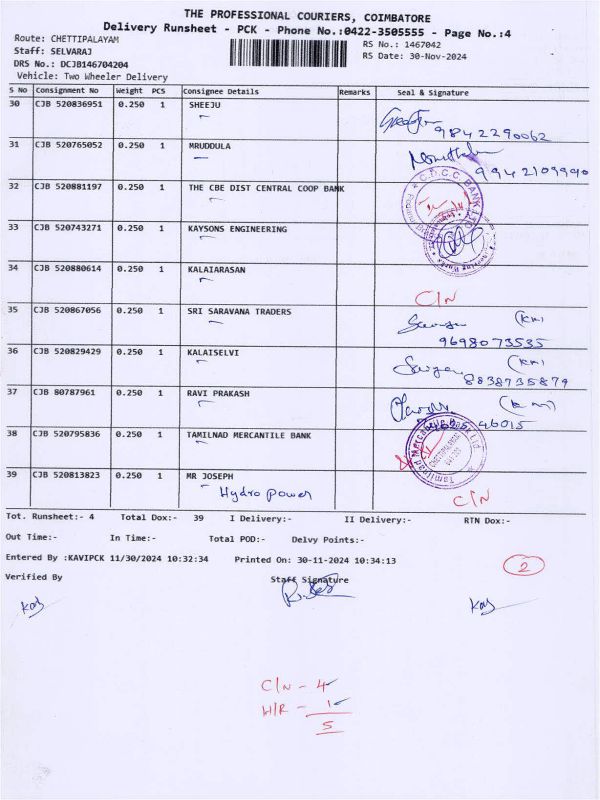 THE PROFESSIONAL COURIERS, COIMBATORE
Delivery Runsheet - PCK - Phone No.:0422-3505555 - Page No.:4
Route: CHETTIPALAYAM
RS No.: 1467042
Staff: SELVARAJ
RS Date: 30-Nov-2024
DRS No.: DCJB146704204
Vehicle: Two Wheeler Delivery
S No Consignment No Weight PCS Consignee Details Remarks Seal & Signature
30 CJB 520836951 0.250 1 SHEEJU
9842290062
31 CJB 520765052 0.250 1 MRUDDULA
9942109990
32 CJB 520881197 0.250 1 THE CBE DIST CENTRAL COOP BANK
C.D.C.C. BANK LTD
33 CJB 520743271 0.250 1 KAYSONS ENGINEERING
34 CJB 520880614 0.250 1 KALAIARASAN
C/N
35 CJB 520867056 0.250 1 SRI SARAVANA TRADERS
9698073535
36 CJB 520829429 0.250 1 KALAISELVI
8838735879
37 CJB 80787961 0.250 1 RAVI PRAKASH
46015
38 CJB 520795836 0.250 1 TAMILNAD MERCANTILE BANK
Tamilnad Mercantile Bank Ltd
39 CJB 520813823 0.250 1 MR JOSEPH
Hydro power
C/N
Tot. Runsheet:- 4 Total Dox:- 39 I Delivery:- II Delivery:- RTN Dox:-
Out Time:- In Time:- Total POD:- Delvy Points:-
Entered By :KAVIPCK 11/30/2024 10:32:34 Printed On: 30-11-2024 10:34:13
2
Verified By Staff Signature
C/N - 4
H/R - 1
5